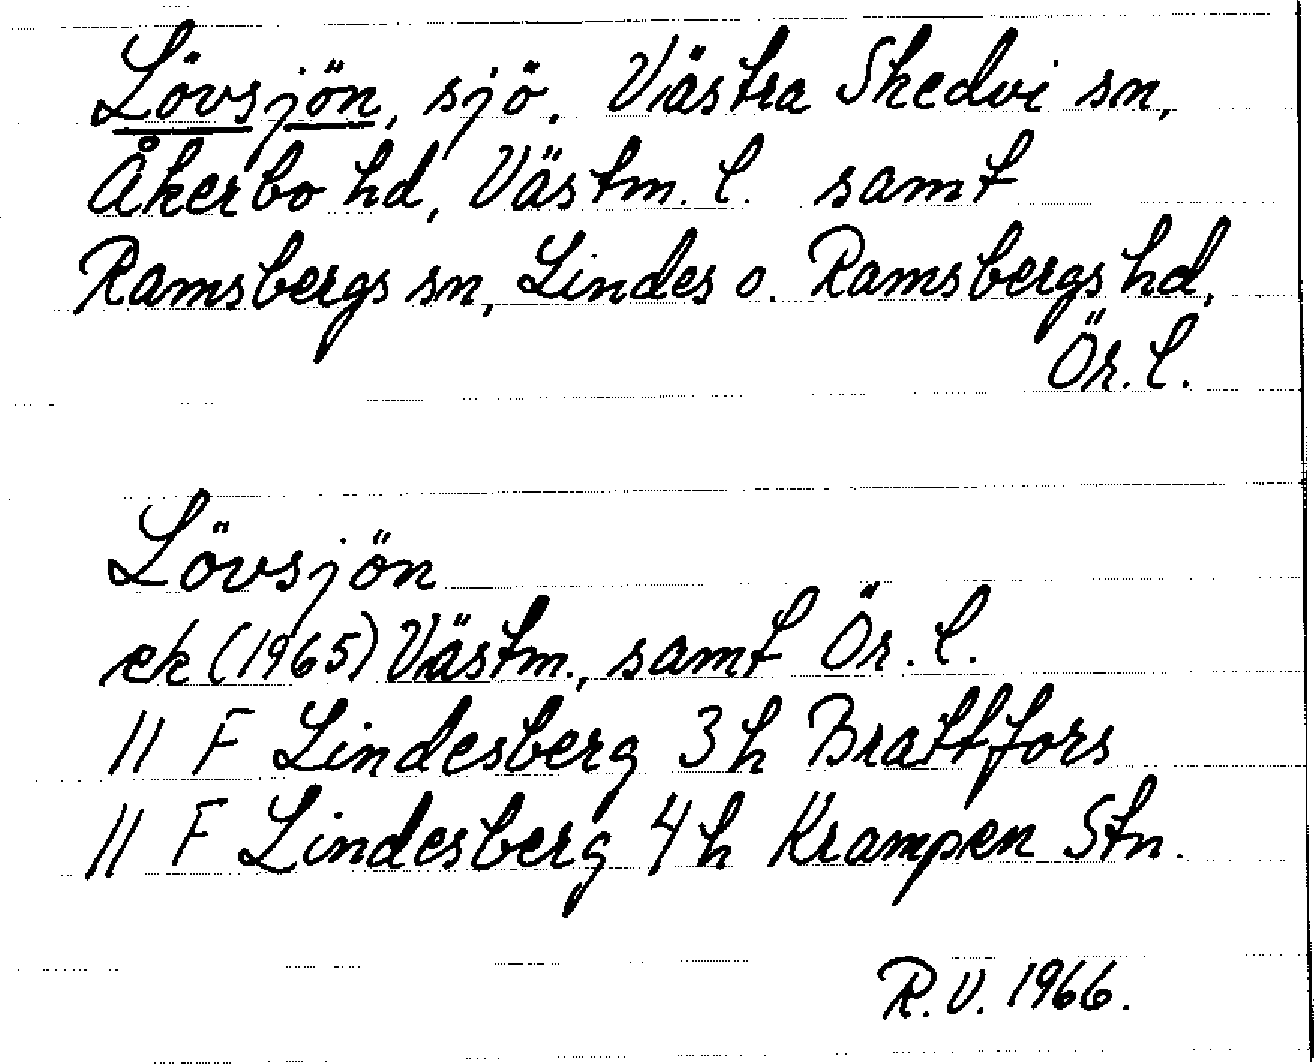 Lövsjön, sjö, Västra Skedvi sn,
Åkerbo hd, Västm. l. samt
Ramsbergs sn, Lindes o. Ramsbergs hd,
Ör. l.
Lövsjön
ek (1965) Västm., samt Ör. l.
11 F Lindesberg 3 h Brattfors
11 F Lindesberg 4 h Krampen Stn.
R.V. 1966.